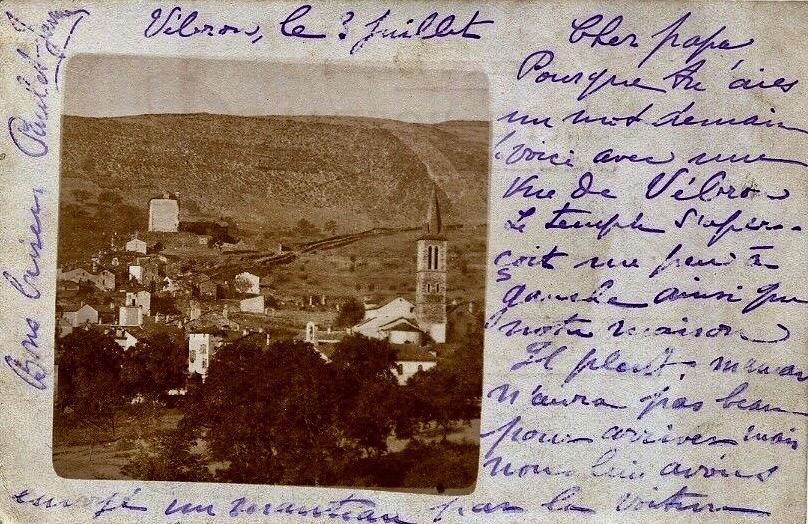 Vébron, le 3 Juillet
Cher papa
Pourque tu aies
un mot demain
voici avec une
vue de Vébron
Le temple s'aper-
çoit un peu à
gauche ainsi que
notre maison
Il pleut, maman
n'aura pas beau
pour arriver mais
nous lui avons
envoyé un manteau par la voiture
Bons baisers Paul et